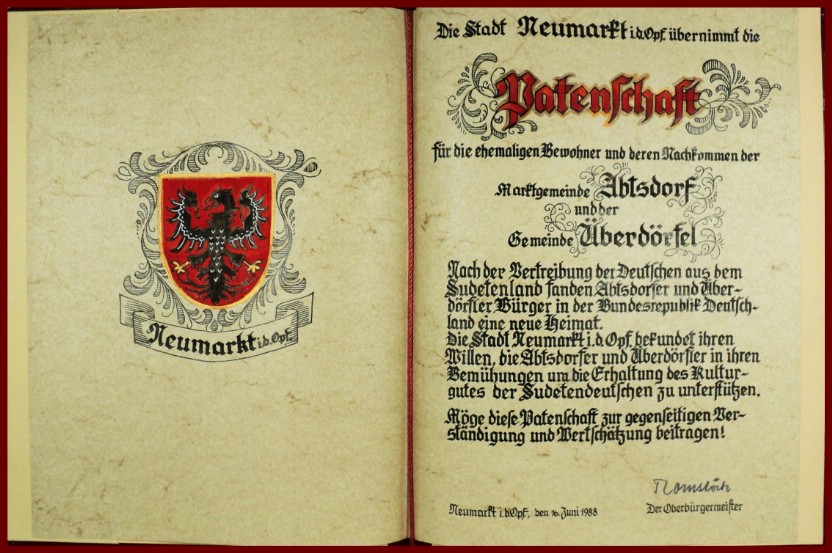 Neumarkt i.d.Opf.
Die Stadt Neumarkt i.d.Opf. übernimmt die
Patenschaft
für die ehemaligen Bewohner und deren Nachkommen der
Marktgemeinde Abtsdorf
und der
Gemeinde Überdörfel
Nach der Vertreibung der Deutschen aus dem
Sudetenland fanden Abtsdorfer und Über-
dörfler Bürger in der Bundesrepublik Deutsch-
land eine neue Heimat.
Die Stadt Neumarkt i.d.Opf. bekundet ihren
Willen, die Abtsdorfer und Überdörfler in ihren
Bemühungen um die Erhaltung des Kultur-
gutes der Sudetendeutschen zu unterstützen.
Möge diese Patenschaft zur gegenseitigen Ver-
ständigung und Wertschätzung beitragen!
Neumarkt i.d.Opf., den 16. Juni 1988
Der Oberbürgermeister